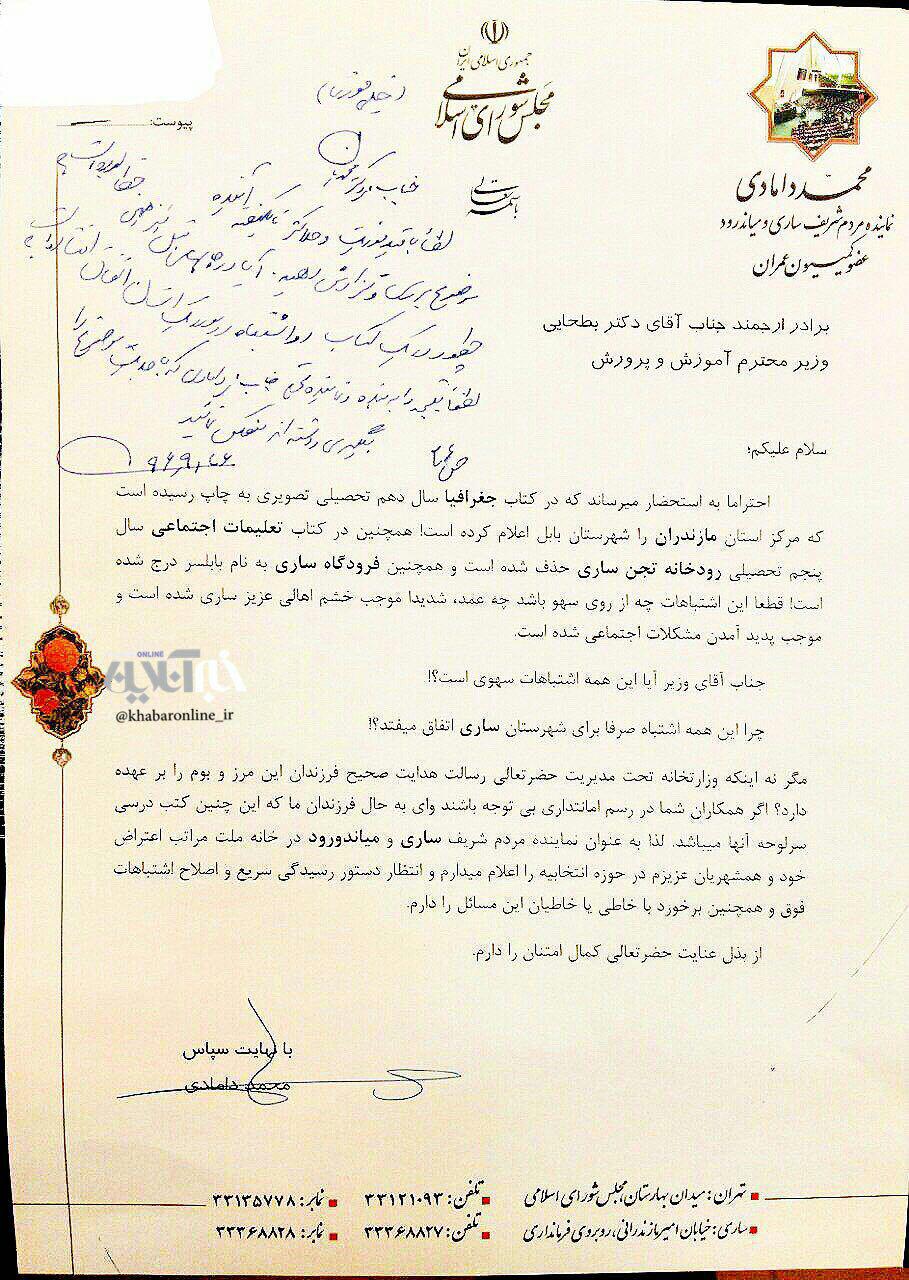 جمهوری اسلامی ایران
مجلس شورای اسلامی
(خیلی فوری)
پیوست:
باسمه تعالی
محمد دامادی
نماینده مردم شریف ساری و میاندرود
عضو کمیسیون عمران
جناب دکتر
لطفاً با قید فوریت و حداکثر تا یکهفته آینده
موضوع بررسی و گزارش دهید. آیا در چاپهای قبل نیز
چطور در یک کتاب دو اشتباه در مورد یک استان اتفاق
لطفاً نتیجه را به بنده و نماینده محترم جناب دامادی که با جدیت موضوع را
پیگیری داشته‌اند منعکس نمائید
برادر ارجمند جناب آقای دکتر بطحایی
وزیر محترم آموزش و پرورش
سلام علیکم؛
احتراما به استحضار میرساند که در کتاب جغرافیا سال دهم تحصیلی تصویری به چاپ رسیده است
که مرکز استان مازندران را شهرستان بابل اعلام کرده است! همچنین در کتاب تعلیمات اجتماعی سال
پنجم تحصیلی رودخانه تجن ساری حذف شده است و همچنین فرودگاه ساری به نام بابلسر درج شده
است! قطعا این اشتباهات چه از روی سهو باشد چه عمد، شدیدا موجب خشم اهالی عزیز ساری شده است و
موجب پدید آمدن مشکلات اجتماعی شده است.
جناب آقای وزیر آیا این همه اشتباهات سهوی است؟!
چرا این همه اشتباه صرفا برای شهرستان ساری اتفاق میفتد؟!
مگر نه اینکه وزارتخانه تحت مدیریت حضرتعالی رسالت هدایت صحیح فرزندان این مرز و بوم را بر عهده
دارد؟ اگر همکاران شما در رسم امانتداری بی توجه باشند وای به حال فرزندان ما که این چنین کتب درسی
سرلوحه آنها میباشد. لذا به عنوان نماینده مردم شریف ساری و میاندورود در خانه ملت مراتب اعتراض
خود و همشهریان عزیزم در حوزه انتخابیه را اعلام میدارم و انتظار دستور رسیدگی سریع و اصلاح اشتباهات
فوق و همچنین برخورد با خاطی یا خاطیان این مسائل را دارم.
از بذل عنایت حضرتعالی کمال امتنان را دارم.
خبرآنلاین
ONLINE
@khabaronline_ir
با نهایت سپاس
محمد دامادی
تهران: میدان بهارستان، مجلس شورای اسلامی تلفن: ۳۳۱۲۱۰۹۳ نمابر: ۳۳۱۳۵۷۷۸
ساری: خیابان امیرمازندرانی، روبروی فرمانداری تلفن: ۳۳۳۶۸۸۲۷ نمابر: ۳۳۳۶۸۸۲۸